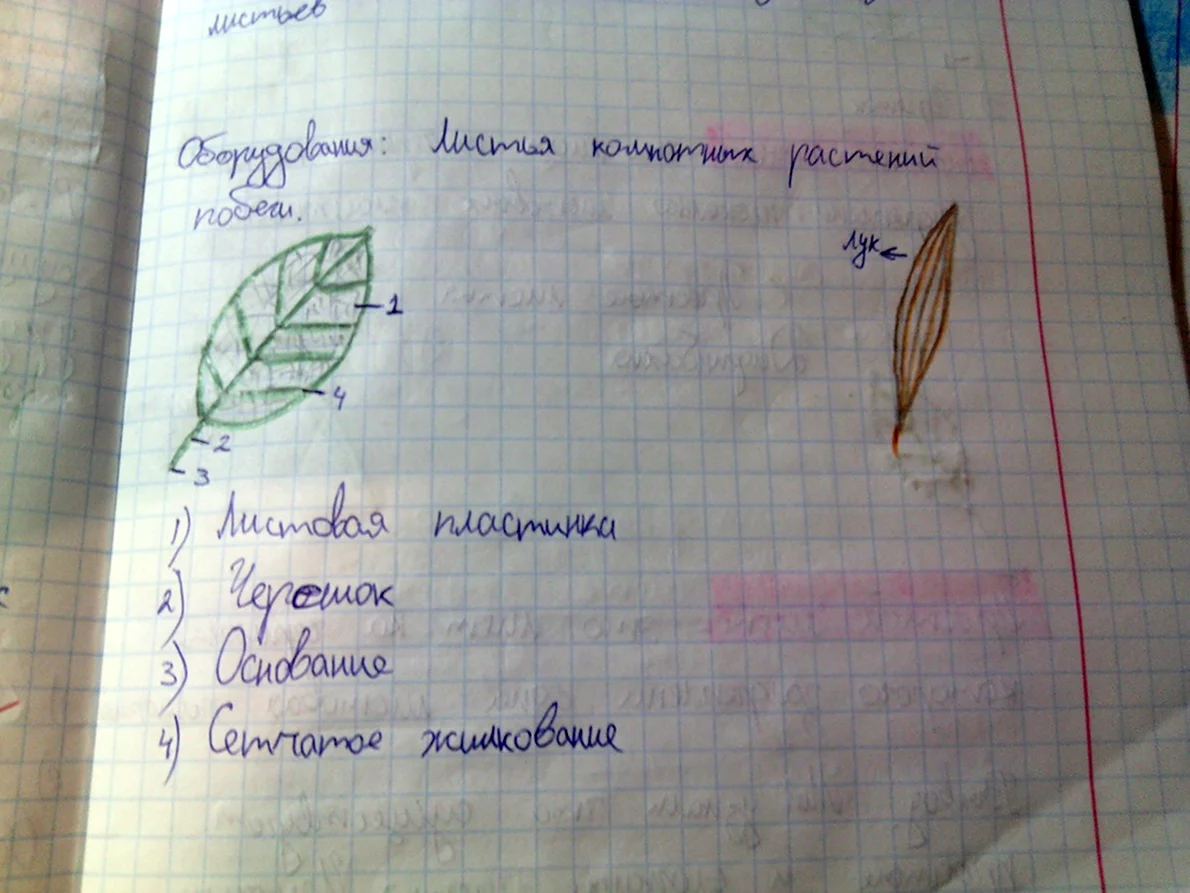 листьев
Оборудования: Листья комнотных растений
побеги.
лук
1
4
2
3
1) Листовая пластинка
2) Черешок
3) Основание
4) Сетчатое жилкование